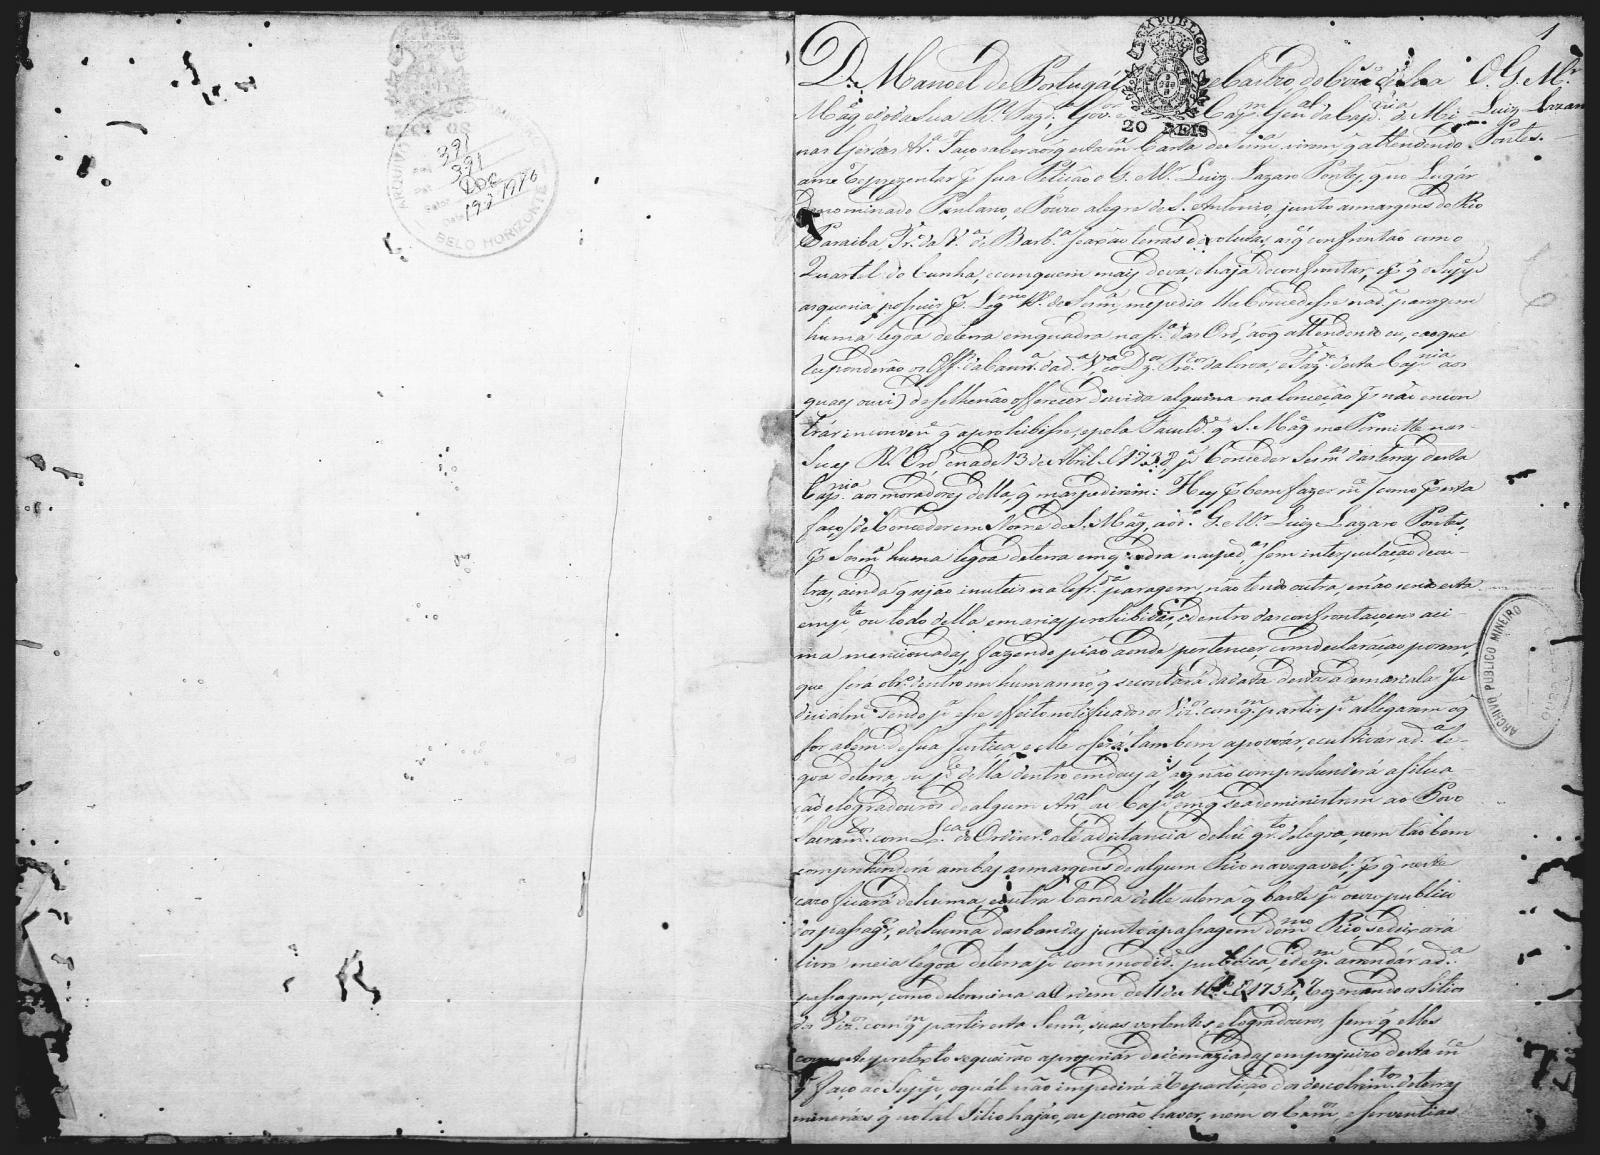 ARQUIVO
391
391
Doc
192 1976
BELO HORIZONTE
1
IMP. PUBLICO
20 REIS
D. Manoel de Portugal e Castro, do Cons.o de Sua
O G. M.r
Mag.e, e da sua R.l Faz.da, Gov.or e Cap.m Gen.al da Cap.nia de Mi-
Luiz Lazaro
nas Geraes &.a Faço saber aos q esta m.a Carta de Sesm.a virem, q attendendo
Pontes.
a me reprezentar p sua Petição o G. M.r Luiz Lazaro Pontes, q no Lugár
denominado e Pouzo alegre de S. Antonio, junto as margens do Rio
Paraiba Tr.o da V.a de Barb.a se axão terras devolutas, as q confrontão com o
Quartel do Cunha, e com quem mais deva, e haja de confrontar, e p q o Supp.e
as queria possuir p Leg.mo tt.o de Sesm.a, me pedia lhe Concedesse na d.a paragem
huma legoa de terra em quadra na f.a das Ord.s, ao q attendendo eu, e ao que
responderão os Off.s da Camr.a da d.a V.a, e o D.or Proc.or da Coroa, e Faz.da desta Cap.nia aos
quaes ouvi) de se lhe não offerecer duvida alguma na Conceção p não encon
trár inconven.te q a prohibisse, e pela facul.de q S. Mag.e me Permitte nas
Suas R.s Ord.s e na de 13 de Abril de 1738, p.a Conceder Sesm.as das terras desta
Cap.nia aos moradores della, q mas pedirem: Hey p bem fazer m.ce (como p esta
faço) de Conceder em Nome de S. Mag.e, ao d.o G. M.r Luiz Lazaro Pontes,
p Sesm.a huma legoa de terra em quadra na sem interpulação de ou-
tras, ainda q sejão inuteis na refr.da paragem, não tendo outra, e não sendo esta
em p.te, ou todo della em arias prohibidas, e dentro das confrontaçoens aci-
ma mencionadas, fazendo pião aonde pertencer, com declaração porem,
que será obr.o dentro em hum anno, q se contará da data desta a demarcala Ju
dicialm.te sendo p.a esse effeito notificados os Viz.os com q.m partir p.a allegarem o q
for abem de sua Justiça, e elle o será tambem a povoar, e cultivar a d.a le-
goa de terra, ou p.te della dentro em dous a.s, a q não comprehenderá a situa
ção e logradouros de algum Arr.al ou Cap.la em q se administrem ao Povo
Sacram.tos com L.ca do Ordinr.o até a distancia de hū qr.to de legoa, nem tão bem
comprehenderá ambas as margens de algum Rio navegavel; p q neste
cazo ficará de huma, e outra banda delle a terra q baste p.a o uzo publico
dos passag.ros, e de huma das bandas junto á passagem do m.mo Rio se deixará
livre meia legoa de terra p.a commodid.e publica, e de q.m arrendár a d.a
passagem, como determina a Ordem de 11 de M.ço de 1754, rezervando os Sitios
dos Viz.os com q.m partir esta Sesm.a, suas vertentes, e logradouros, sem q elles
com este pretexto se queirão apropriar de demaziadas em prejuizo desta m.ce
q faço ao Supp.e, o qual não impedirá a repartição dos descobrim.tos de terras
mineraes q no tal Sitio hajão, ou possão haver, nem os Cam.os, e serventias
ARCHIVO PUBLICO MINEIRO
OURO